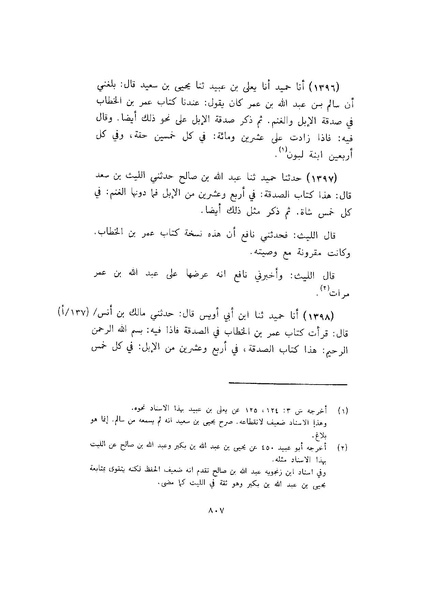 (١٣٩٦) أنا حميد أنا يعلى بن عبيد ثنا يحيى بن سعيد قال: بلغني
أن سالم بن عبد الله بن عمر كان يقول: عندنا كتاب عمر بن الخطاب
في صدقة الإبل والغنم. ثم ذكر صدقة الإبل على نحو ذلك أيضا. وقال
فيه: فاذا زادت على عشرين ومائة: في كل خمسين حقة، وفي كل
أربعين ابنة لبون(١).
(١٣٩٧) حدثنا حميد ثنا عبد الله بن صالح حدثني الليث بن سعد
قال: هذا كتاب الصدقة: في أربع وعشرين من الإبل فما دونها الغنم: في
كل خمس شاة. ثم ذكر مثل ذلك أيضا.
قال الليث: فحدثني نافع أن هذه نسخة كتاب عمر بن الخطاب.
وكانت مقرونة مع وصيته.
قال الليث: وأخبرني نافع انه عرضها على عبد الله بن عمر
مرات(٢).
(١٣٩٨) أنا حميد ثنا ابن أبي أويس قال: حدثني مالك بن أنس/ (١٣٧/أ)
قال: قرأت كتاب عمر بن الخطاب في الصدقة فاذا فيه: بسم الله الرحمن
الرحيم: هذا كتاب الصدقة، في أربع وعشرين من الإبل: في كل خمس
(١) أخرجه ش ٣: ١٢٤، ١٢٥ عن يعلى بن عبيد بهذا الاسناد نحوه.
وهذا الاسناد ضعيف لانقطاعه. صرح يحيى بن سعيد انه لم يسمعه من سالم. إنما هو
بلاغ.
(٢) أخرجه أبو عبيد ٤٥٠ عن يحيى بن عبد الله بن بكير وعبد الله بن صالح عن الليث
بهذا الاسناد مثله.
وفي اسناد ابن زنجويه عبد الله بن صالح تقدم انه ضعيف الحفظ لكنه يتقوى بمتابعة
يحيى بن عبد الله بن بكير وهو ثقة في الليث كما مضى.
٨٠٧